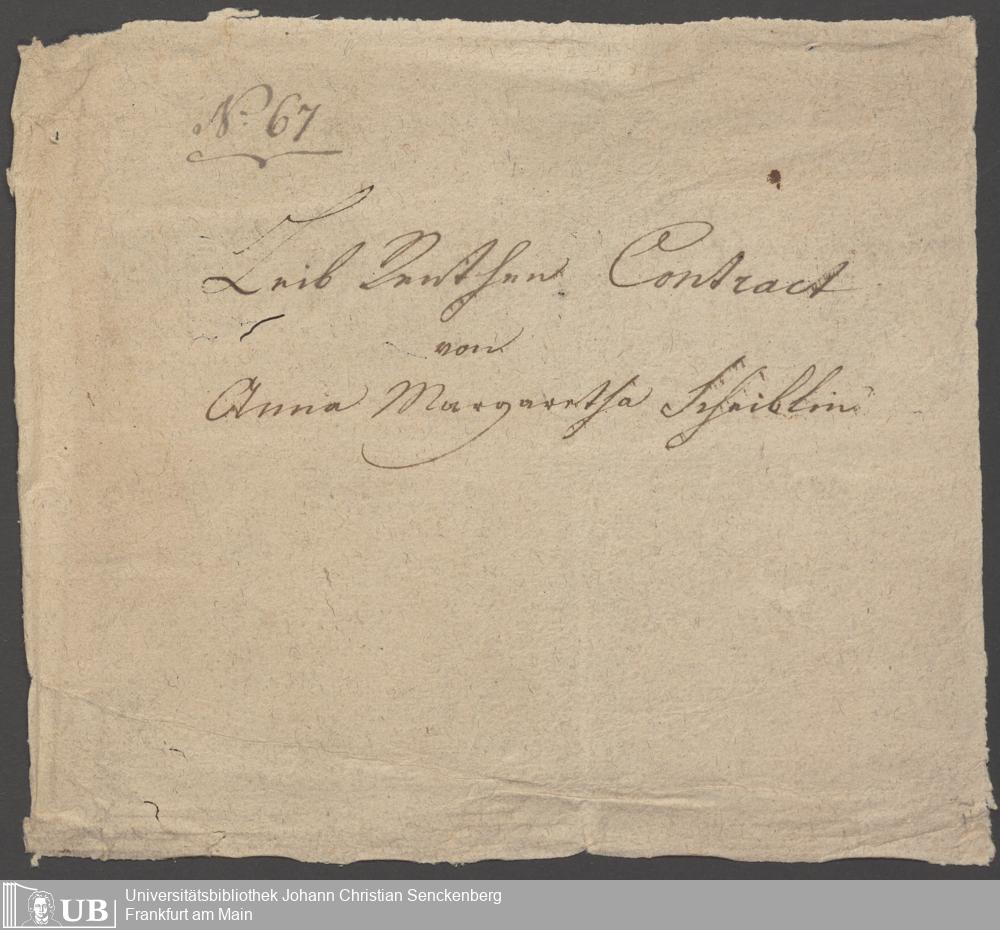 No. 67
Leib Renthen Contract
von
Anna Margaretha Scheiblin
UB
Universitätsbibliothek Johann Christian Senckenberg
Frankfurt am Main